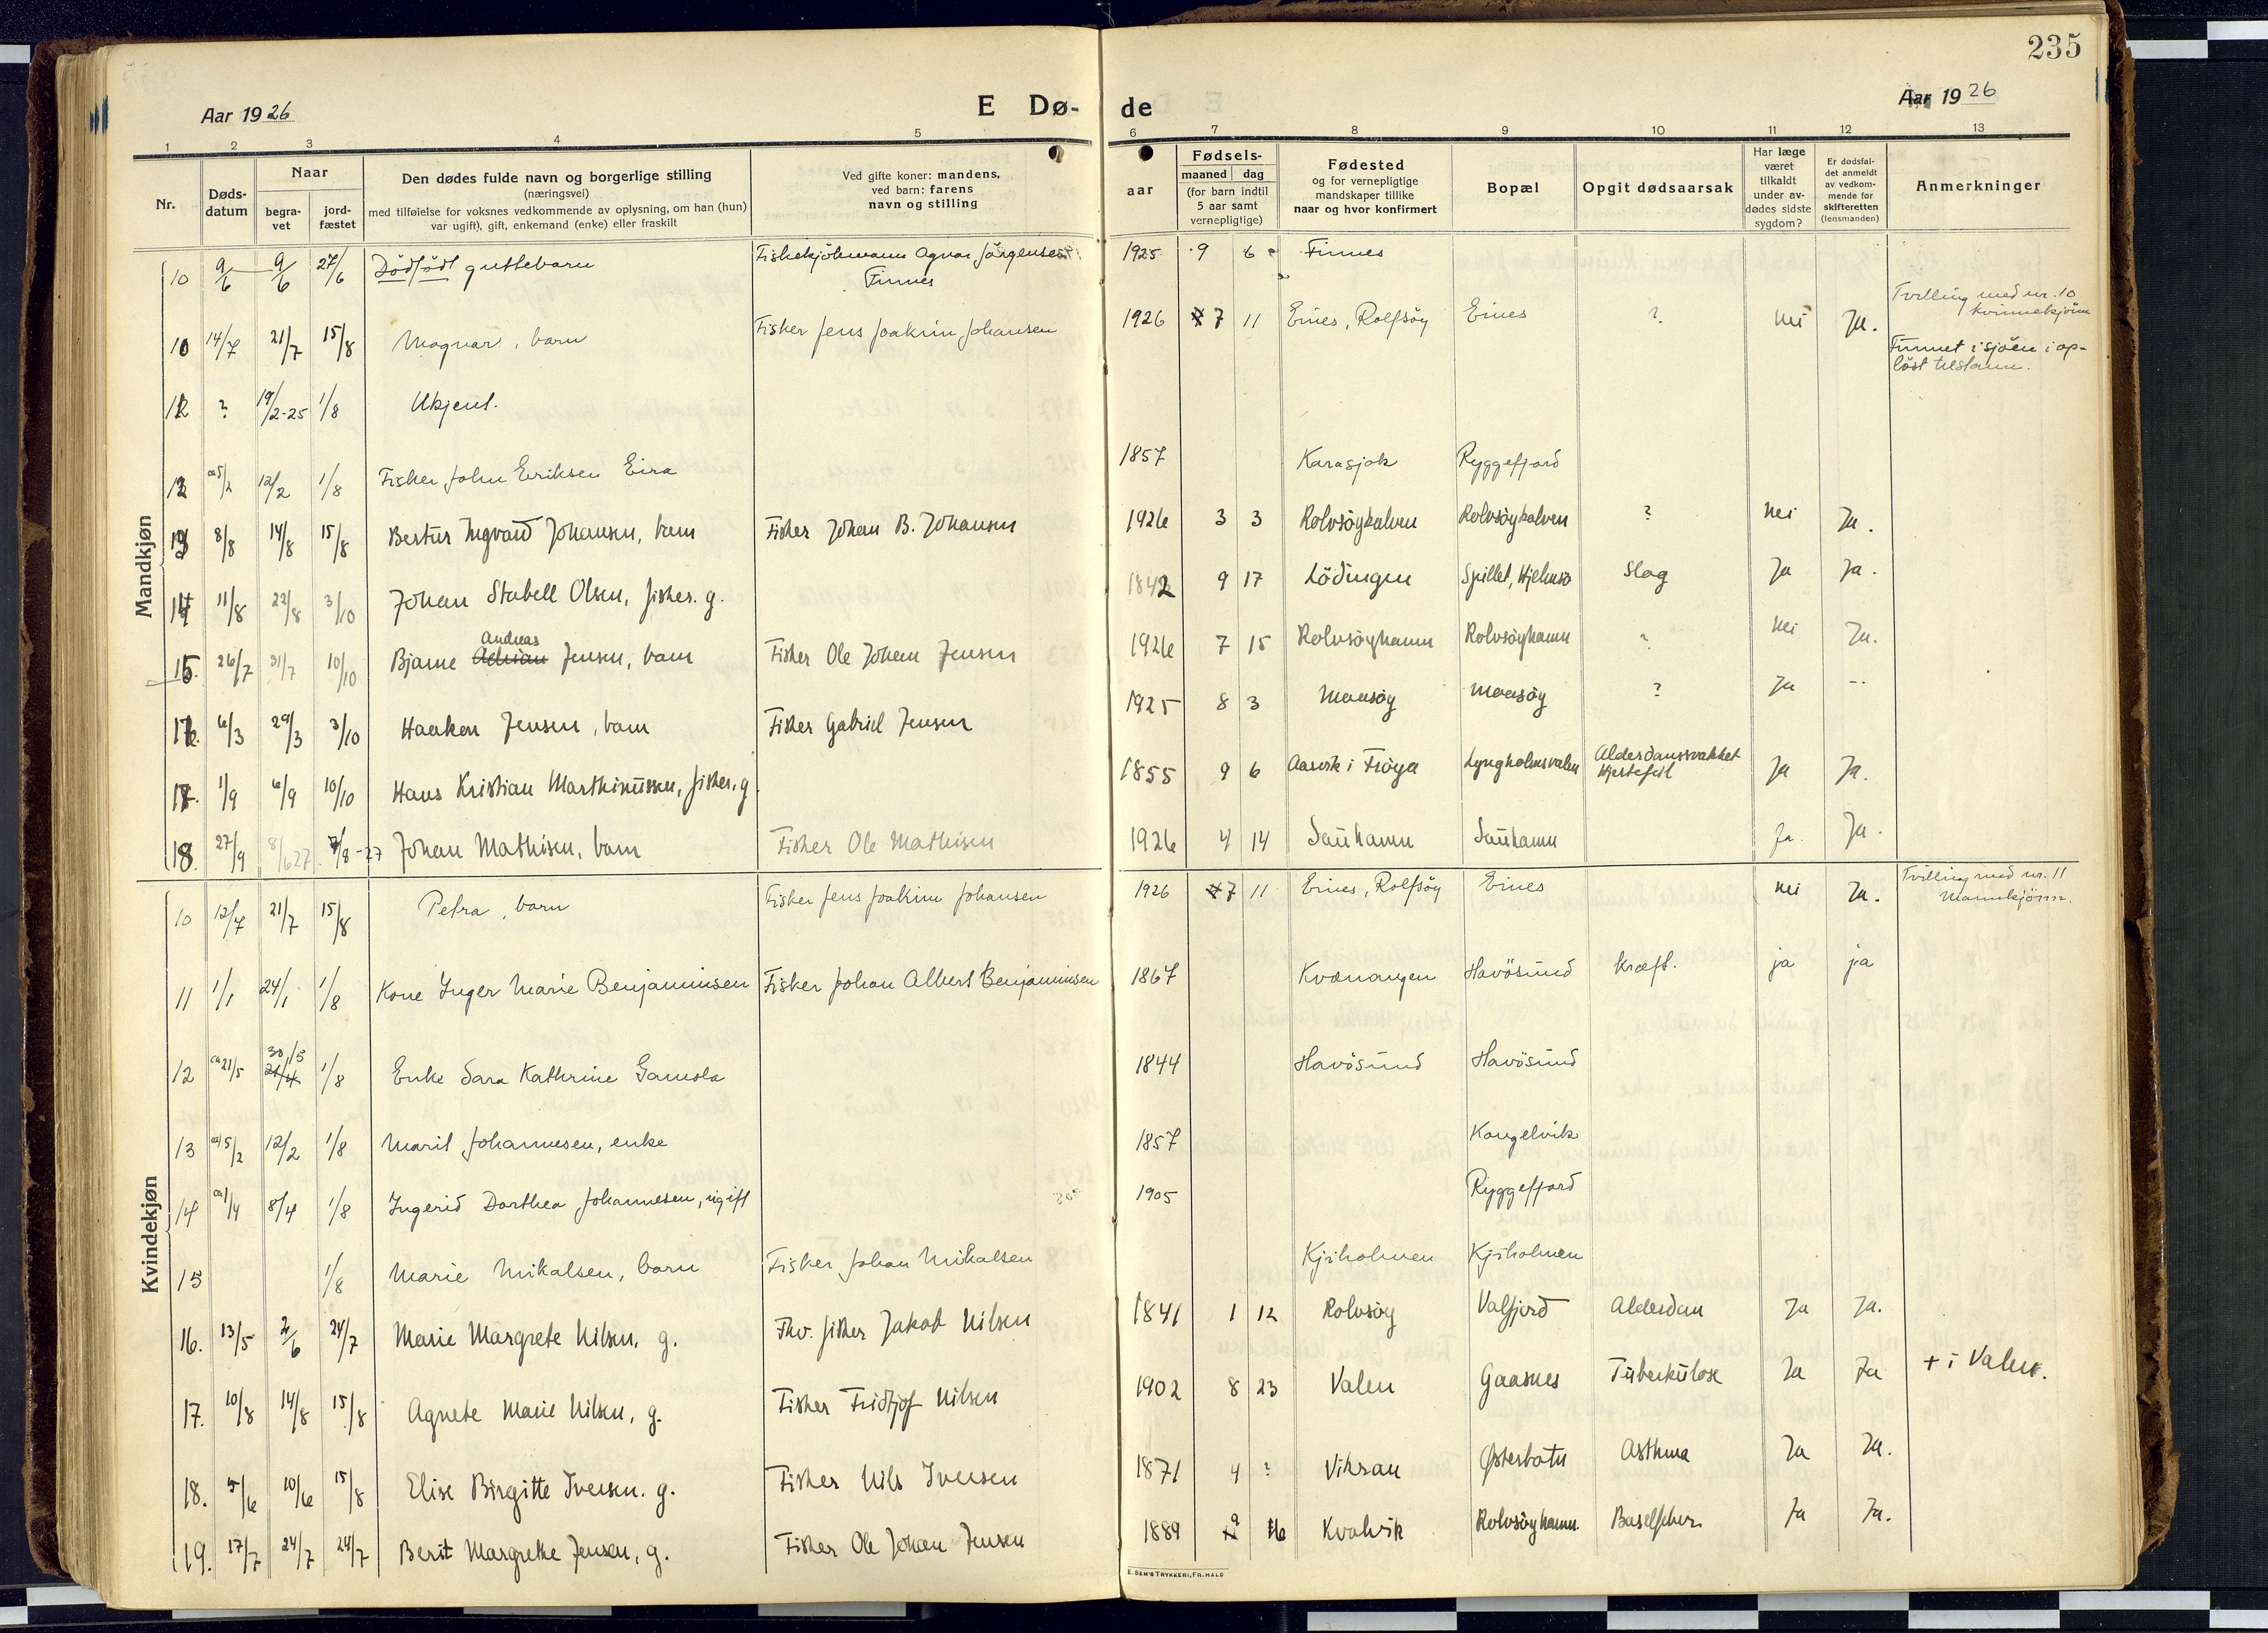 235
Aar 1926
E Dø-
de
Aar 1926
1 2 3 4 5 6 7 8 9 10 11 12 13
Nr.
Døds-
datum
Naar
begra-
vet
jord-
fæstet
Den dødes fulde navn og borgerlige stilling
(næringsvei)
med tilføielse for voksnes vedkommende av oplysning, om han (hun)
var ugift), gift, enkemand (enke) eller fraskilt
Ved gifte koner: mandens,
ved barn: farens
navn og stilling
aar
Fødsels-
maaned dag
(for barn indtil
5 aar samt
vernepligtige)
Fødested
og for vernepligtige
mandskaper tillike
naar og hvor konfirmert
Bopæl
Opgit dødsaarsak
Har læge
været
tilkaldt
under av-
dødes sidste
sygdom?
Er dødsfal-
det anmeldt
av vedkom-
mende for
skifteretten
(lensmanden)
Anmerkninger
Mandkjøn
10 9/6 9/6 27/6 Dödfödt guttebarn Fiskekjöbmann Agnar Jörgensen Finnes 1925 9 6 Finnes
10 14/7 21/7 15/8 Magnar, barn Fisker Jens Joakim Johansen 1926 7 11 Eines, Rolfsöy Eines ? nei Ja. Tvilling med nr. 10 kvinnekjönn
12 ? 19/2-25 1/8 Ukjent. Funnet i sjöen i op-
löst tilstann.
12 ca 5/2 12/2 1/8 Fisker John Eriksen Eira 1857 Karasjok Ryggefjord
13 8/8 14/8 15/8 Bertus Ingvard Johansen, barn Fisker Johan B. Johansen 1926 3 3 Rolvsöykalven Rolvsöykalven ? nei Ja.
14 11/8 22/8 3/10 Johan Stabell Olsen, fisker. g. 1842 9 17 Lödingen Spillet, Hjelmsö Slag Ja Ja.
15. 26/7 31/7 10/10 Bjarne Adrian Andreas Jensen, barn Fisker Ole Johan Jensen 1926 7 15 Rolvsöyhamn Rolvsöyhamn ? nei Ja.
17. 6/3 29/3 3/10 Haakon Jensen, barn Fisker Gabriel Jensen 1925 8 3 Maasöy Maasöy ? Ja --
17. 1/9 6/9 10/10 Hans Kristian Marthinussen, fisker, g. 1855 9 6 i Fröya Lyngholmsvalen Alderdomssvakhet
Hjertefeil Ja Ja.
18. 27/9 8/6 27. 7/8-27 Johan Mathisen, barn Fisker Ole Mathisen 1926 4 14 Sauhamn Sauhamn Ja. Ja.
Kvindekjøn
10 12/7 21/7 15/8 Petra, barn Fisker Jens Joakim Johansen 1926 7 11 Eines, Rolfsöy Eines nei Ja. Tvilling med nr. 11
Mannkjönn.
11 1/1 24/1 1/8 Kone Inger Marie Benjaminsen Fisker Johan Albert Benjaminsen 1867 Kvænangen Havösund kræft. ja ja
12 ca 21/5 30/5 1/8 Enke Sara Kathrine Gamsla 1844 Havösund Havösund
13 ca 5/2 12/2 1/8 Marit Johannesen, enke 1857 Kongelvik
14 ca 1/4 8/4 1/8 Ingerid Dorthea Johannesen, ugift 1905 Ryggefjord
15 1/8 Marie Mikalsen, barn Fisker Johan Mikalsen Kjiholmen Kjiholmen
16. 13/5 2/6 24/7 Marie Margrete Nilsen, g. Fhv. fisker Jakob Nilsen 1841 1 12 Rolvsöy Valfjord Alderdom Ja Ja.
17. 10/8 14/8 15/8 Agnete Marie Nilsen, g. Fisker Fridtjof Nilsen 1902 8 23 Valen Gaasnes Tuberkulose Ja Ja + i Valen.
18. 5/6 10/6 15/8 Elise Birgitte Iversen. g. Fisker Nils Iversen 1871 4 ? Vikran Østerbotn Asthma Ja Ja.
19. 17/7 24/7 24/7 Berit Margrethe Jensen, g. Fisker Ole Johan Jensen 1889 9 16 Kvalvik Rolvsöyhamn Barselfeber Ja Ja.
E. SEM'S TRYKKERI, FR.HALD